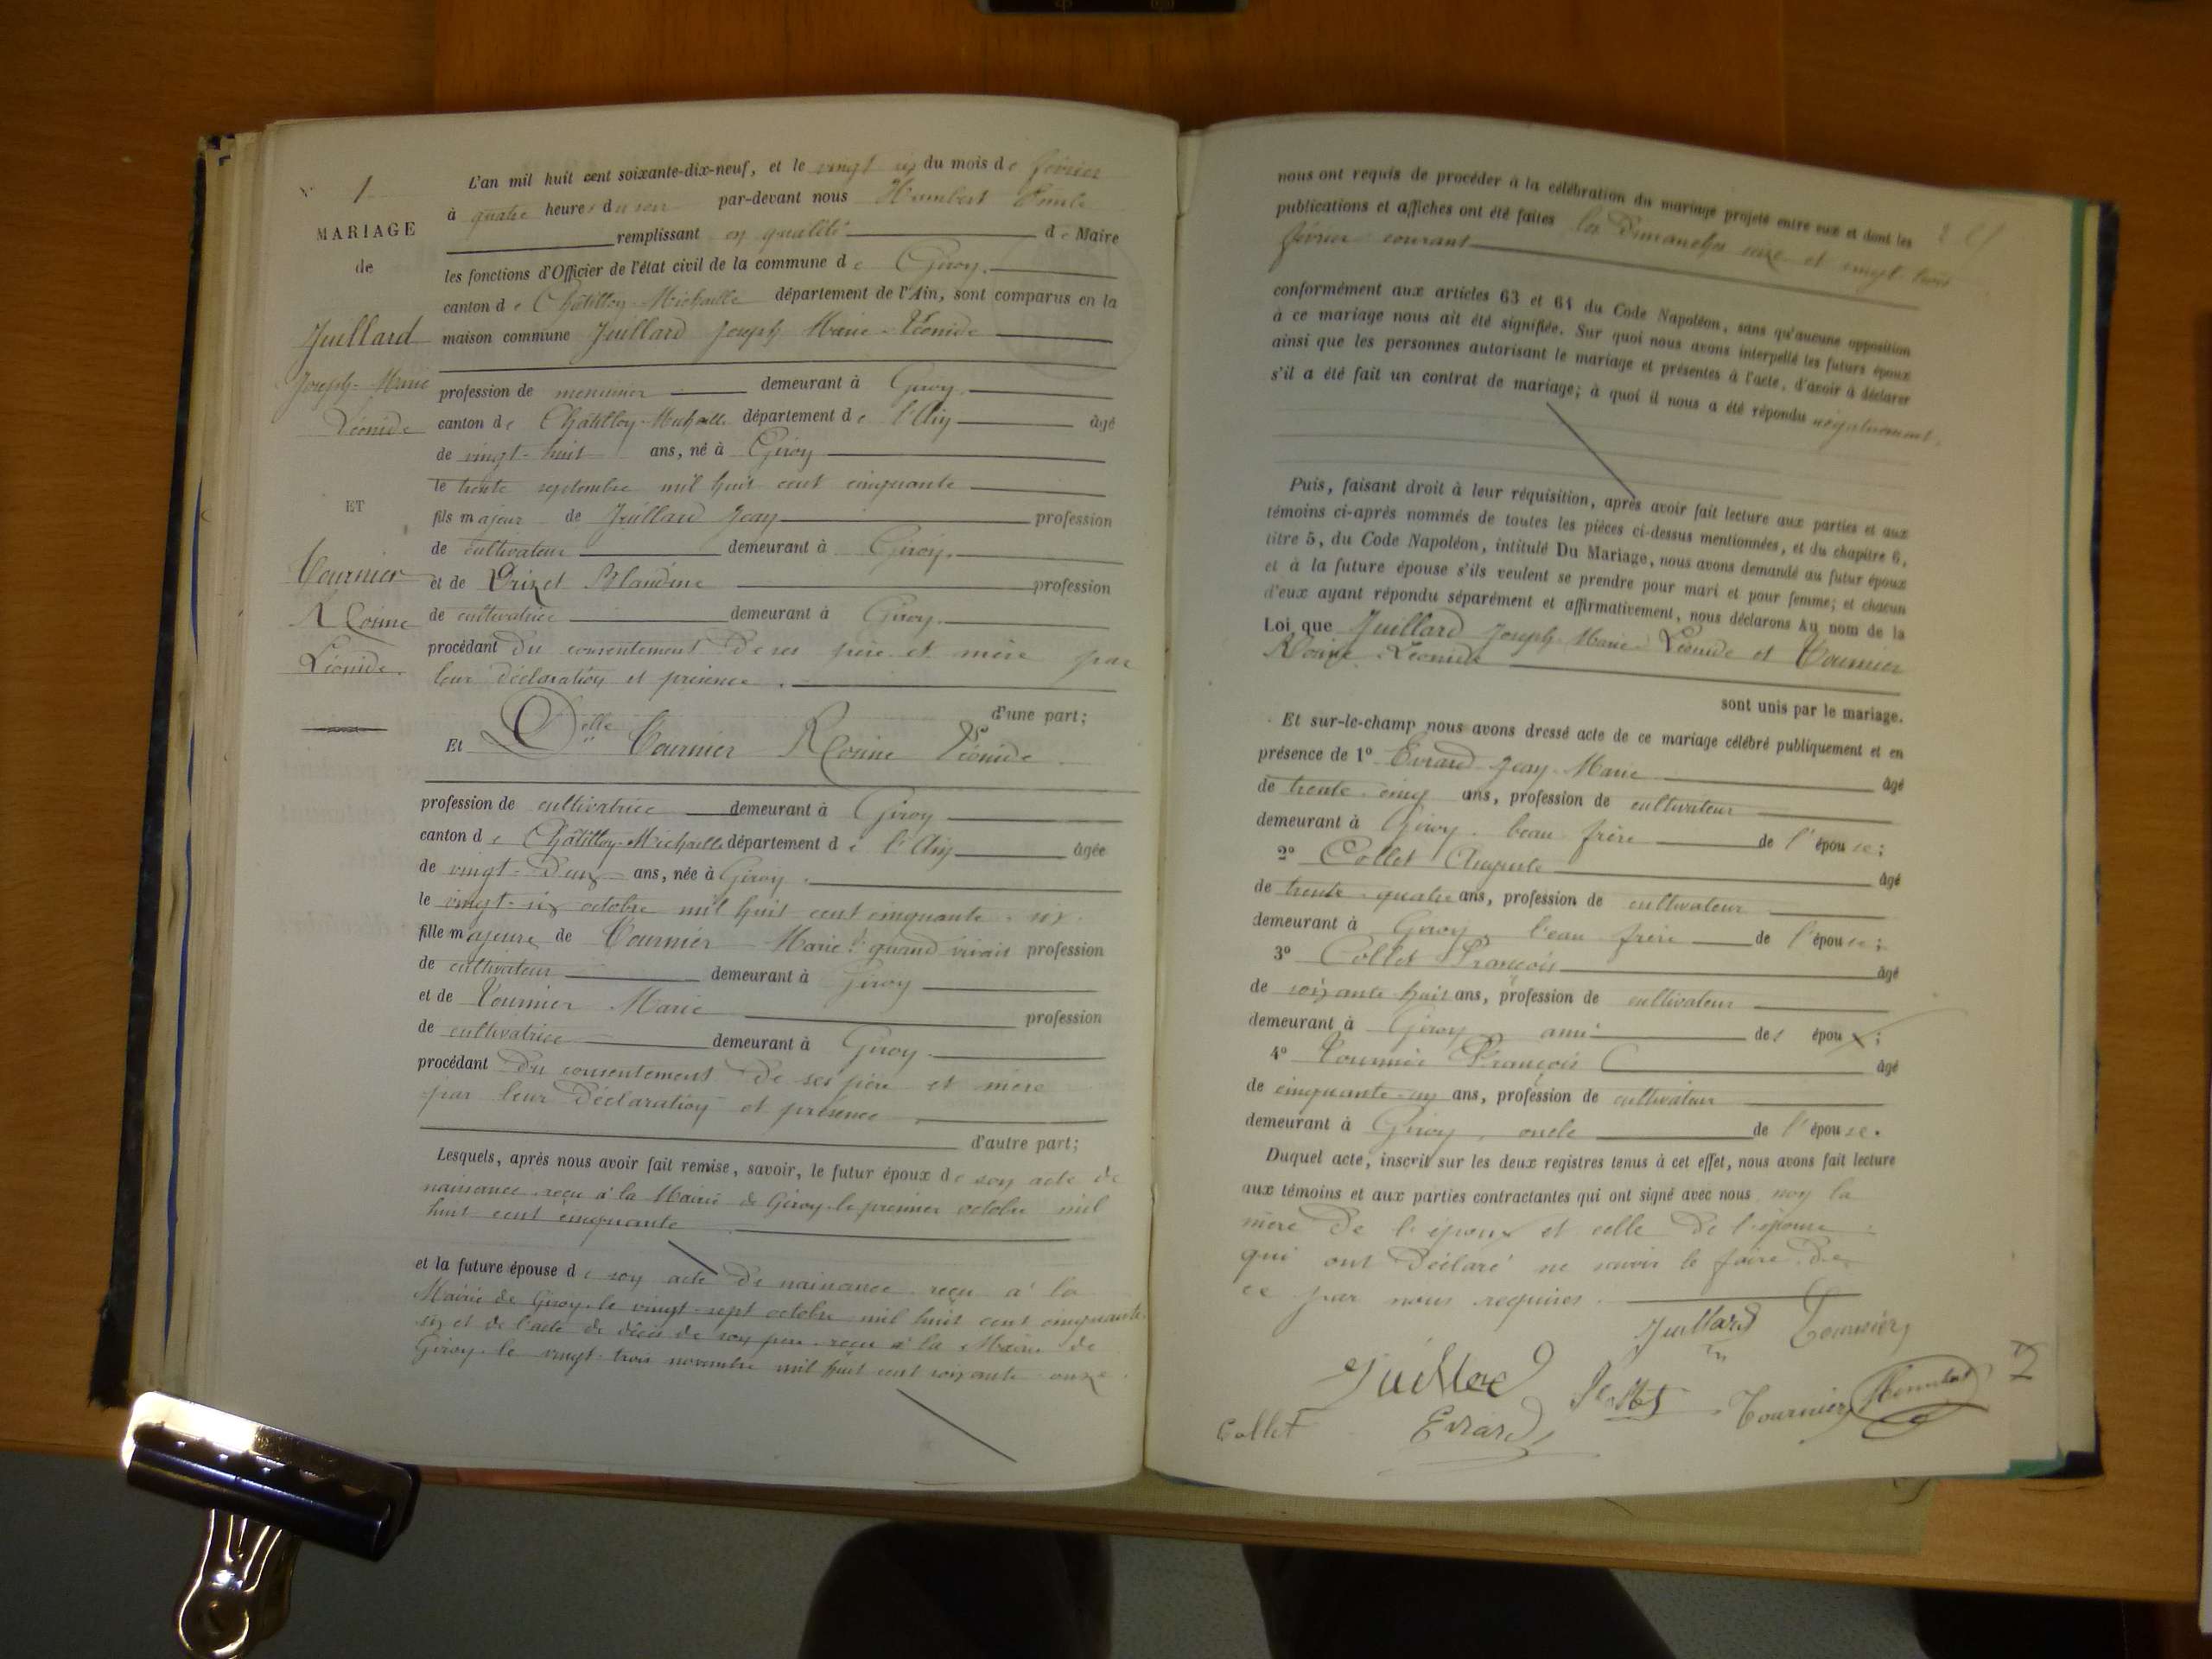 N° 1
MARIAGE
de
Juillard
Joseph-Marie
Léonide
ET
Tournier
Rosine
Léonide.
L'an mil huit cent soixante-dix-neuf, et le vingt six du mois de février
à quatre heures du soir par-devant nous Humbert Emile
remplissant en qualité de Maire
les fonctions d'Officier de l'état civil de la commune de Giroy.
canton de Châtillon-Michaille département de l'Ain, sont comparus en la
maison commune Juillard Joseph Marie-Léonide
profession de menuisier demeurant à Giroy.
canton de Châtillon-Michaille département de l'Ain âgé
de vingt-huit ans, né à Giroy
le trente septembre mil huit cent cinquante
fils majeur de Juillard Jean profession
de cultivateur demeurant à Giroy.
et de Blandine profession
de cultivatrice demeurant à Giroy.
procédant du consentement de ses père et mère par
leur déclaration et présence.
d'une part;
Et Delle Tournier Rosine Léonide
profession de cultivatrice demeurant à Giroy
canton de Châtillon-Michaille département de l'Ain âgée
de vingt-deux ans, née à Giroy.
le vingt-six octobre mil huit cent cinquante-six.
fille majeure de Tournier Marie quand vivait profession
de cultivateur demeurant à Giroy
et de Tournier Marie profession
de cultivatrice demeurant à Giroy.
procédant du consentement de ses père et mère
par leur déclaration et présence
d'autre part;
Lesquels, après nous avoir fait remise, savoir, le futur époux de son acte de
naissance reçu à la Mairie de Giroy le premier octobre mil
huit cent cinquante
et la future épouse de son acte de naissance reçu à la
Mairie de Giroy le vingt-sept octobre mil huit cent cinquante
six et de l'acte de décès de son père reçu à la Mairie de
Giroy le vingt-trois novembre mil huit cent soixante onze.
nous ont requis de procéder à la célébration du mariage projeté entre eux et dont les
publications et affiches ont été faites les Dimanches seize et vingt trois
février courant
conformément aux articles 63 et 64 du Code Napoléon, sans qu'aucune opposition
à ce mariage nous ait été signifiée. Sur quoi nous avons interpellé les futurs époux
ainsi que les personnes autorisant le mariage et présentes à l'acte, d'avoir à déclarer
s'il a été fait un contrat de mariage; à quoi il nous a été répondu négativement.
Puis, faisant droit à leur réquisition, après avoir fait lecture aux parties et aux
témoins ci-après nommés de toutes les pièces ci-dessus mentionnées, et du chapitre 6,
titre 5, du Code Napoléon, intitulé Du Mariage, nous avons demandé au futur époux
et à la future épouse s'ils veulent se prendre pour mari et pour femme; et chacun
d'eux ayant répondu séparément et affirmativement, nous déclarons Au nom de la
Loi que Juillard Joseph-Marie-Léonide et Tournier
Rosine Léonide
sont unis par le mariage.
Et sur-le-champ nous avons dressé acte de ce mariage célébré publiquement et en
présence de 1° Evrard Jean-Marie âgé
de trente-cinq ans, profession de cultivateur
demeurant à Giroy. beau frère de l'épouse;
2° Collet Auguste âgé
de trente-quatre ans, profession de cultivateur
demeurant à Giroy, beau frère de l'épouse;
3° Collet François âgé
de soixante huit ans, profession de cultivateur
demeurant à Giroy, ami des époux;
4° Tournier François âgé
de cinquante-un ans, profession de cultivateur
demeurant à Giroy, oncle de l'épouse.
Duquel acte, inscrit sur les deux registres tenus à cet effet, nous avons fait lecture
aux témoins et aux parties contractantes qui ont signé avec nous non la
mère de l'époux et celle de l'épouse
qui ont déclaré ne savoir le faire de
ce par nous requises.
Juillard Tournier
Juillard Tournier Humbert
Collet Evrard